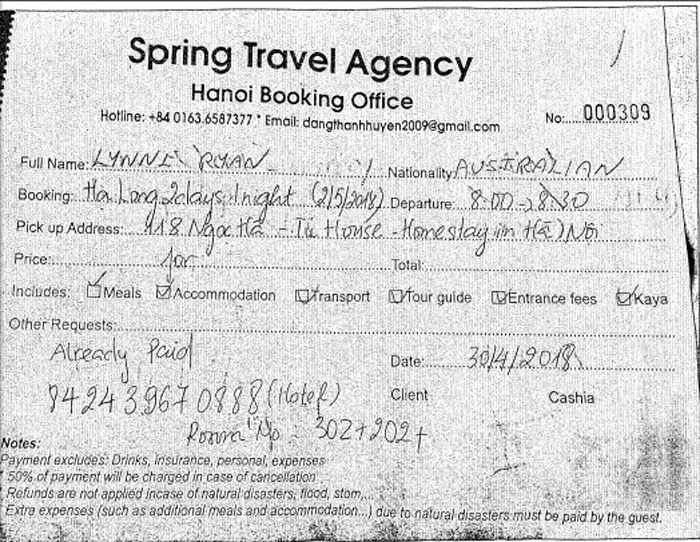 Spring Travel Agency
Hanoi Booking Office
Hotline: +84 0163.6587377 * Email: dangthanhhuyen2009@gmail.com
No:.....000309
Full Name: LYNNE RYAN Nationality AUSTRALIAN
Booking: Ha Long 2days 1night (2/5/2018) Departure: 8:00 -> 8:30
Pick up Address: 418 Ngọc Hà - Tủ House - Homestay in Hà Nội
Price: for Total:
Includes: Meals Accommodation Transport Tour guide Entrance fees Kaya
Other Requests:
Already Paid Date: 30/4/2018
84243 9670888 (Hotel) Client Cashia
Room No: 302+202+
Notes:
Payment excludes: Drinks, insurance, personal, expenses
* 50% of payment will be charged in case of cancellation
* Refunds are not applied incase of natural disasters, flood, stom,...
Extra expenses (such as additional meals and accommodation...) due to natural disasters must be paid by the guest.